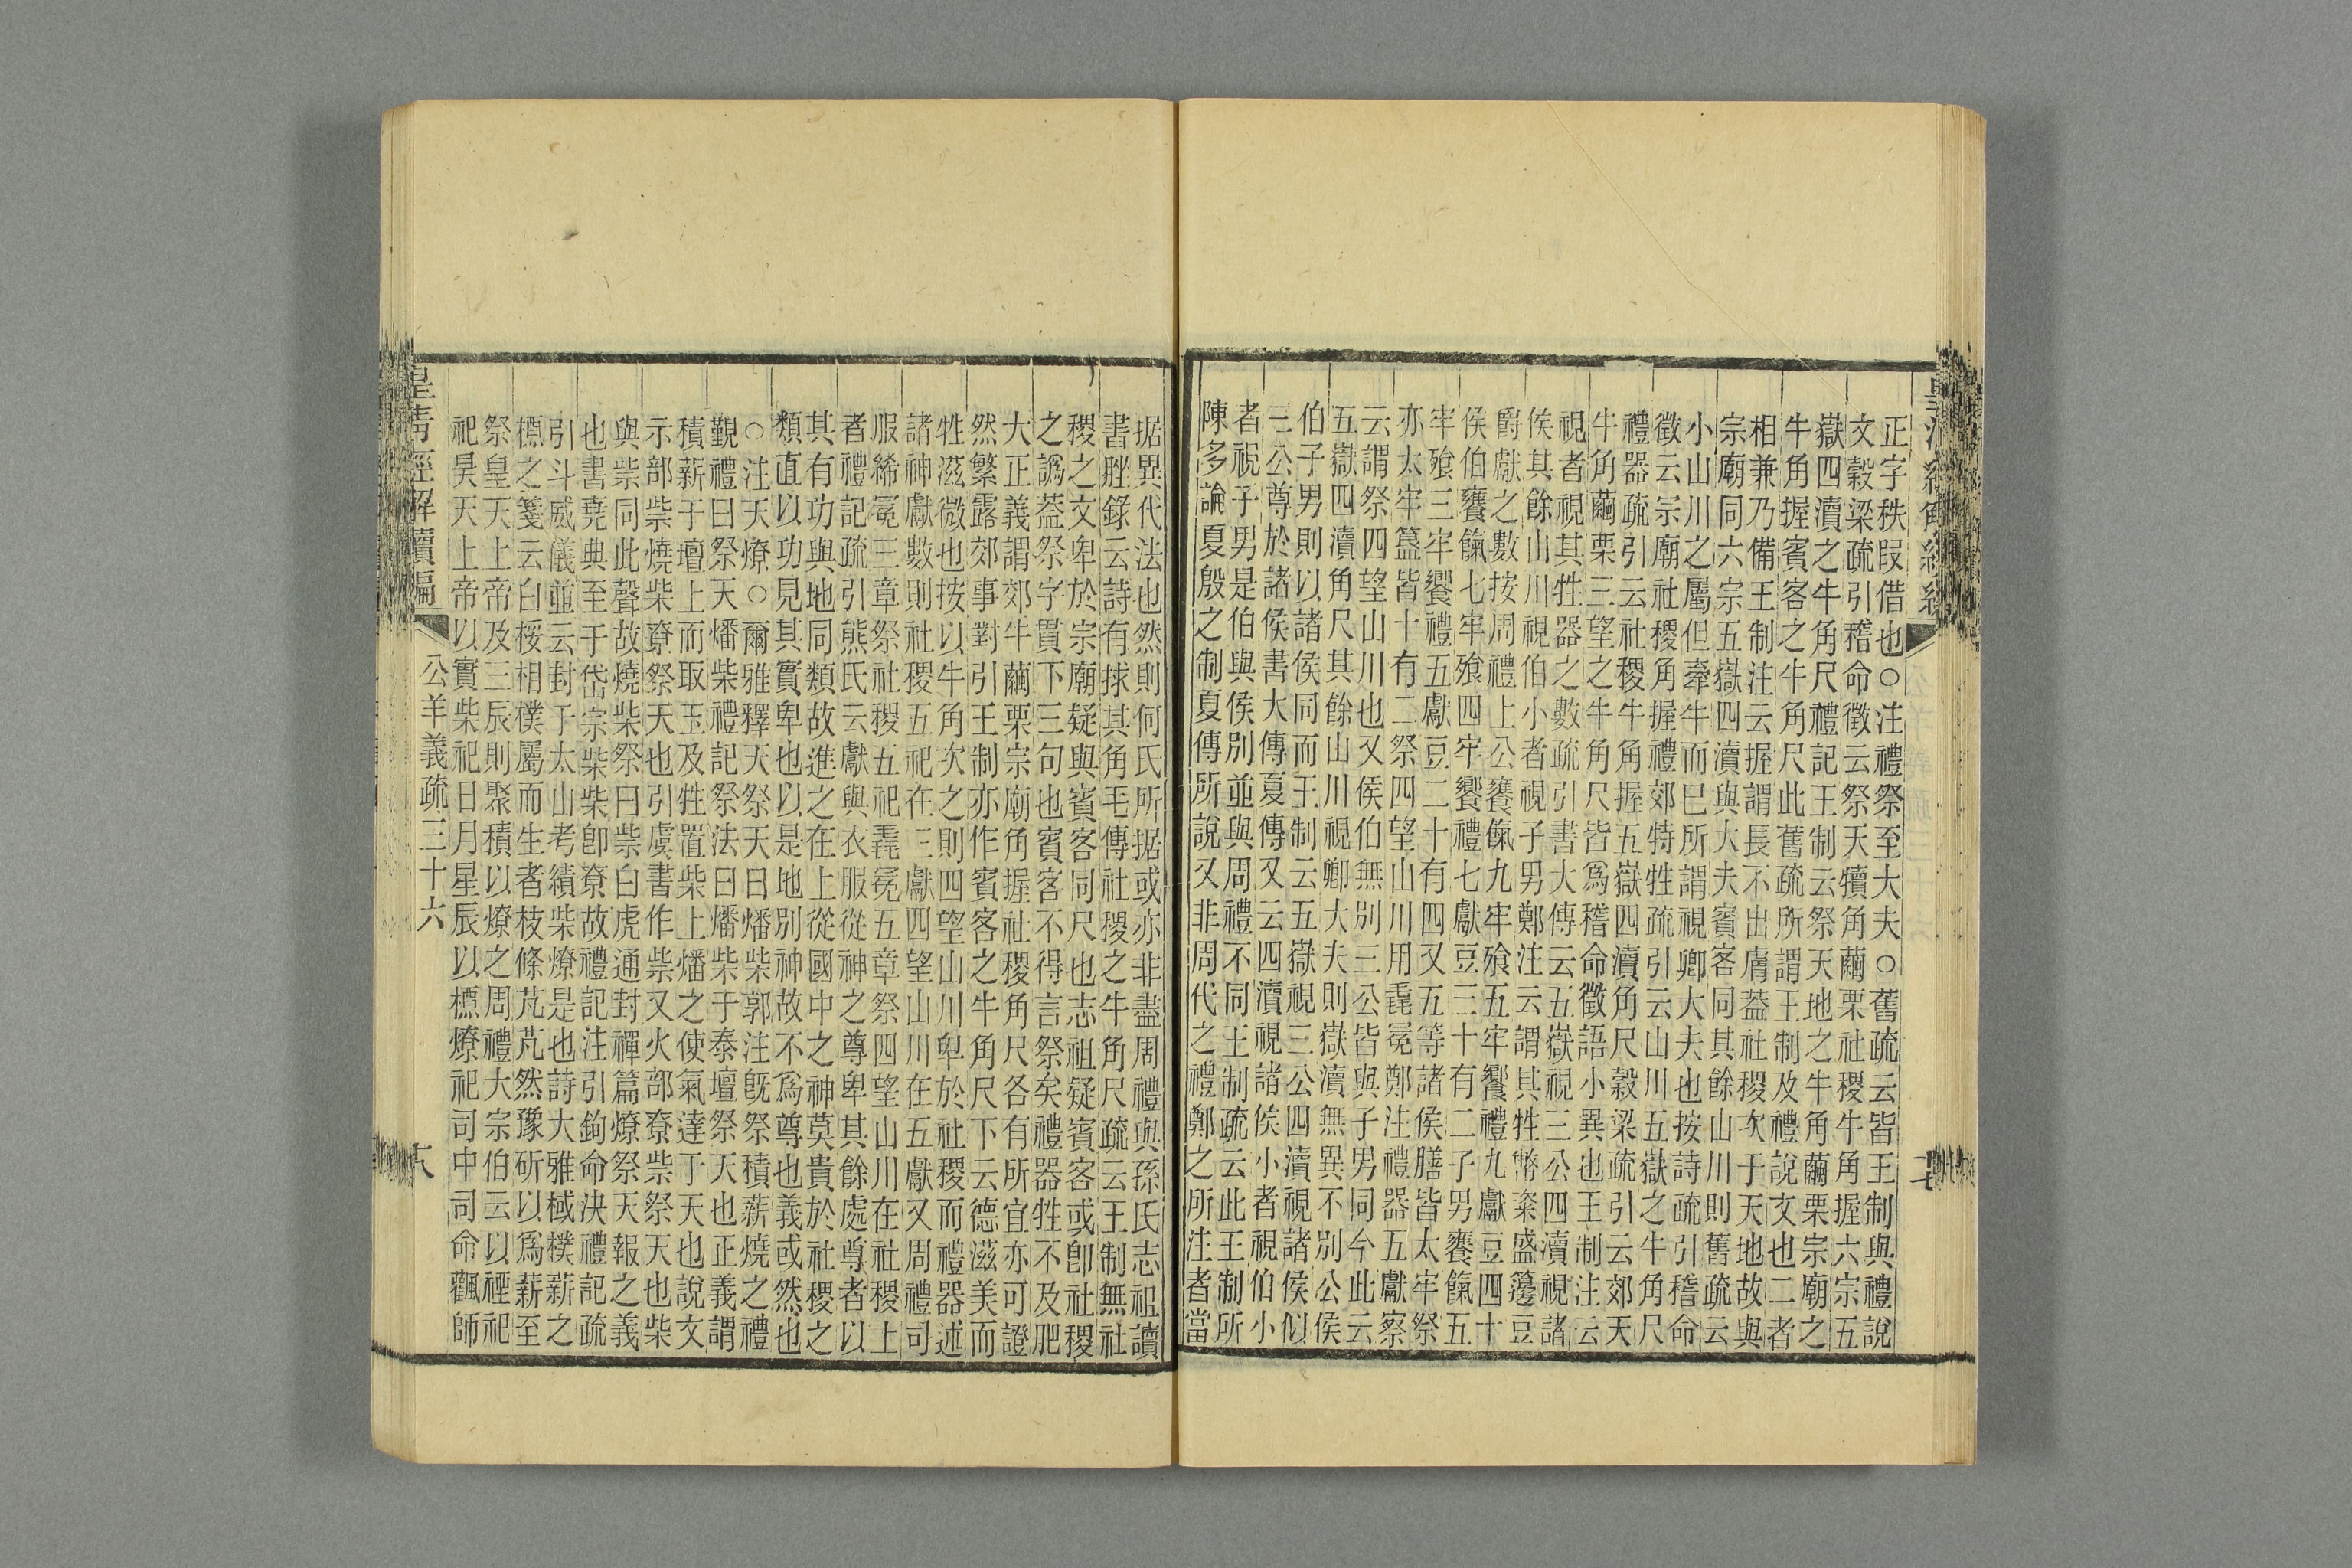 正字秩叚借也○注禮祭至大夫○舊疏云皆王制與禮說
文穀梁疏引稽命徵云祭天犢角繭栗社稷牛角握六宗五
嶽四瀆之牛角尺禮記王制云祭天地之牛角繭栗宗廟之
牛角握賓客之牛角尺此舊疏所謂王制及禮說文也二者
相兼乃備王制注云握謂長不出膚葢社稷次于天地故與
宗廟同六宗五嶽四瀆與大夫賓客同其餘山川則舊疏云
小山川之屬但牽牛而巳所謂視卿大夫也按詩疏引稽命
徵云宗廟社稷角握禮郊特牲疏引云山川五嶽之牛角尺
禮器疏引云社稷牛角握五嶽四瀆角尺穀梁疏引云郊天
牛角繭栗三望之牛角尺皆爲稽命徵語小異也王制注云
視者視其牲器之數疏引書大傳云五嶽視三公四瀆視諸
侯其餘山川視伯小者視子男鄭注云謂其牲幣粢盛籩豆
爵獻之數按周禮上公饔餼九牢飱五牢饗禮九獻豆四十
侯伯饔餼七牢飱四牢饗禮七獻豆三十有二子男饔餼五
牢飱三牢饗禮五獻豆二十有四又五等諸侯膳皆太牢祭
亦太牢簋皆十有二祭四望山川用毳冕鄭注禮器五獻察
云謂祭四望山川也又侯伯無別三公皆與子男同今此云
五嶽四瀆角尺其餘山川視卿大夫則嶽瀆無異不別公侯
伯子男則以諸侯同而王制云五嶽視三公四瀆視諸侯似
三公尊於諸侯書大傳夏傳又云四瀆視諸侯小者視伯小
者視子男是伯與侯別並與周禮不同王制疏云此王制所
陳多論夏殷之制夏傳所說又非周代之禮鄭之所注者當
据異代法也然則何氏所据或亦非盡周禮與孫氏志祖讀
書脞錄云詩有捄其角毛傳社稷之牛角尺疏云王制無社
稷之文卑於宗廟疑與賓客同尺也志祖疑賓客或卽社稷
之譌葢祭字貫下三句也賓客不得言祭矣禮器牲不及肥
大正義謂郊牛繭栗宗廟角握社稷角尺各有所宜亦可證
然繁露郊事對引王制亦作賓客之牛角尺下云德滋美而
牲滋微也按以牛角次之則四望山川卑於社稷而禮器述
諸神獻數則社稷五祀在三獻四望山川在五獻又周禮司
服絺冕三章祭社稷五祀毳冕五章祭四望山川在社稷上
者禮記疏引熊氏云獻與衣服從神之尊卑其餘處尊者以
其有功與地同類故進之在上從國中之神莫貴於社稷之
類直以功見其實卑也以是地別神故不爲尊也義或然也
○注天燎○爾雅釋天祭天曰燔柴郭注旣祭積薪燒之禮
覲禮曰祭天燔柴禮記祭法曰燔柴于泰壇祭天也正義謂
積薪于壇上而取玉及牲置柴上燔之使氣達于天也說文
示部祡燒柴寮祭天也引虞書作祡又火部寮祡祭天也柴
與祡同此聲故燒柴祭曰祡白虎通封禪篇燎祭天報之義
也書堯典至于岱宗柴柴卽尞故禮記注引鉤命決禮記疏
引斗威儀並云封于太山考績柴燎是也詩大雅棫樸薪之
槱之箋云白桵相樸屬而生者枝條芃芃然豫斫以爲薪至
祭皇天上帝及三辰則聚積以燎之周禮大宗伯云以禋祀
祀昊天上帝以實柴祀日月星辰以槱燎祀司中司命飌師
皇清經解續編
公羊義疏三十六